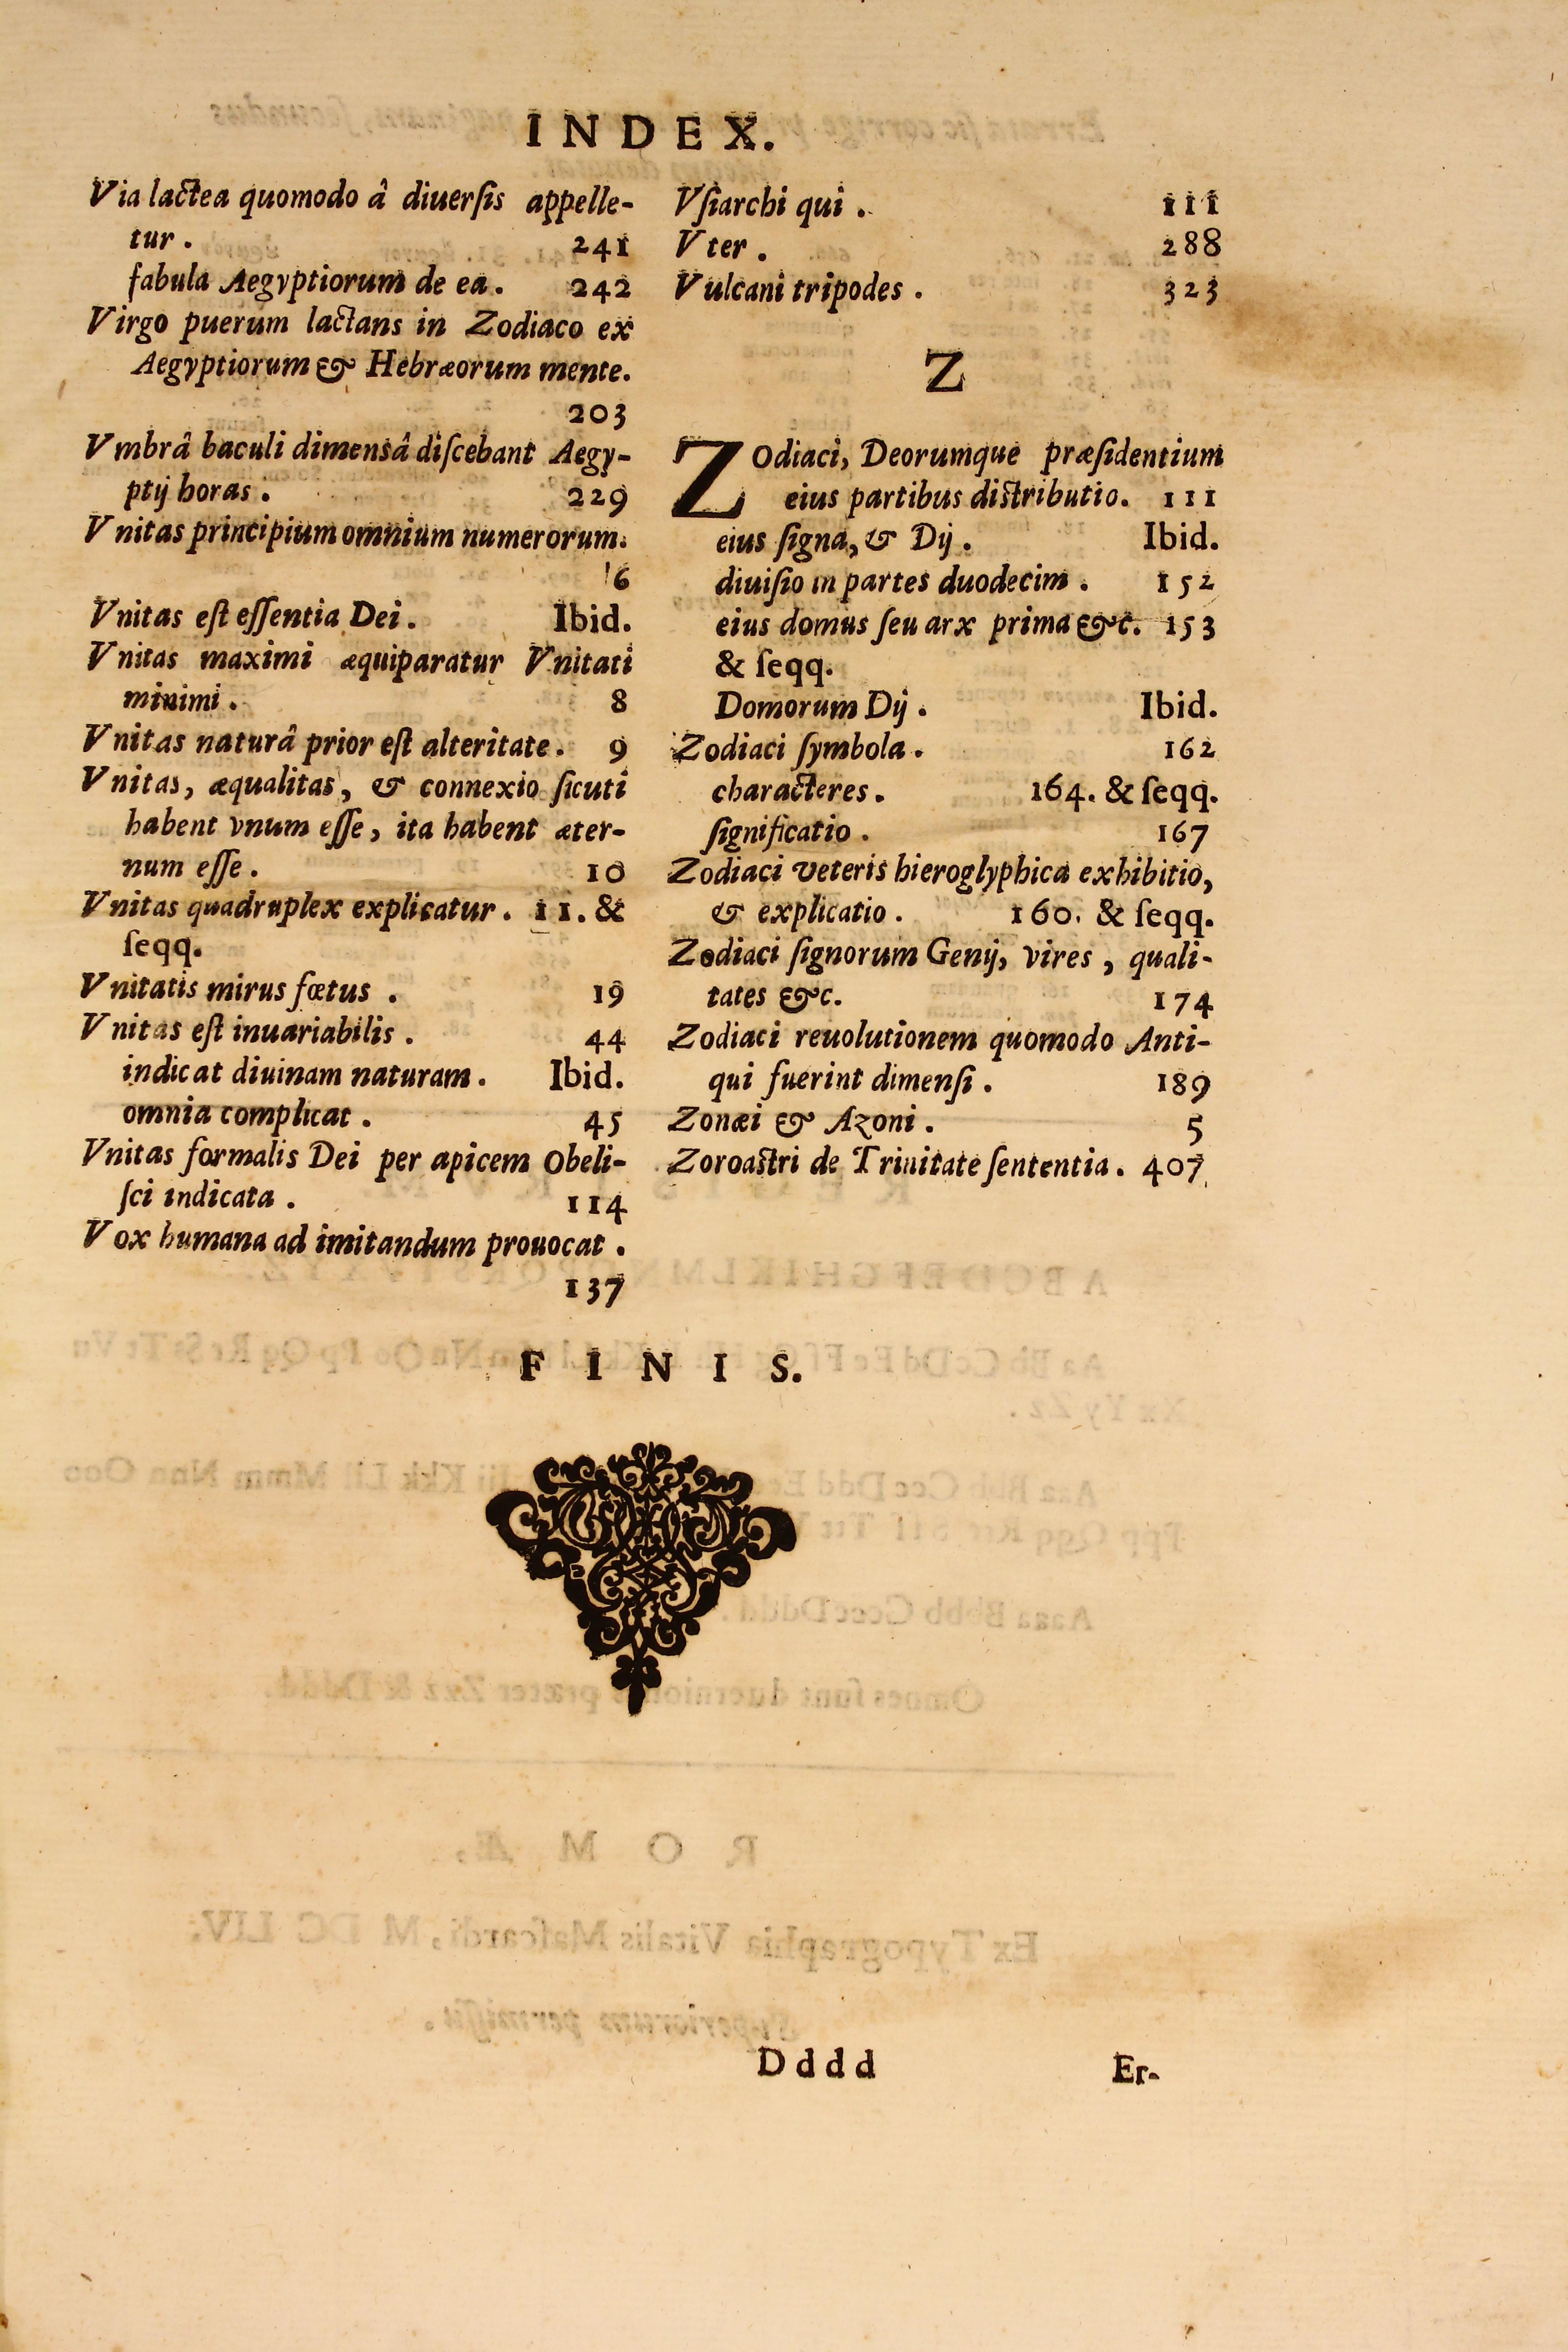 INDEX.
Via lactea quomodo â diuerſis appelle-
tur. 241
fabula Aegyptiorum de ea. 242
Virgo puerum lactans in Zodiaco ex
Aegyptiorum & Hebræorum mente.
203
Vmbrâ baculi dimensâ diſcebant Aegy-
ptij horas. 229
Vnitas principium omnium numerorum.
6
Vnitas eſt eſſentia Dei. Ibid.
Vnitas maximi æquiparatur Vnitati
minimi. 8
Vnitas naturâ prior eſt alteritate. 9
Vnitas, æqualitas, & connexio ſicuti
habent vnum eſſe, ita habent æter-
num eſſe. 10
Vnitas quadruplex explicatur. 11. &
ſeqq.
Vnitatis mirus fœtus. 19
Vnitas eſt inuariabilis. 44
indicat diuinam naturam. Ibid.
omnia complicat. 45
Vnitas formalis Dei per apicem Obeli-
ſci indicata. 114
Vox humana ad imitandum prouocat.
137
Vſiarchi qui. 111
Vter. 288
Vulcani tripodes. 323
Z
ZOdiaci, Deorumque præſidentium
eius partibus diſtributio. 111
eius ſigna, & Dij. Ibid.
diuiſio in partes duodecim. 152
eius domus ſeu arx prima &c. 153
& ſeqq.
Domorum Dij. Ibid.
Zodiaci ſymbola. 162
characteres. 164. & ſeqq.
ſignificatio. 167
Zodiaci veteris hieroglyphica exhibitio,
& explicatio. 160. & ſeqq.
Zodiaci ſignorum Genij, vires, quali-
tates &c. 174
Zodiaci reuolutionem quomodo Anti-
qui fuerint dimenſi. 189
Zonæi & Azoni. 5
Zoroaſtri de Trinitate ſententia. 407
FINIS.
Dddd Er-